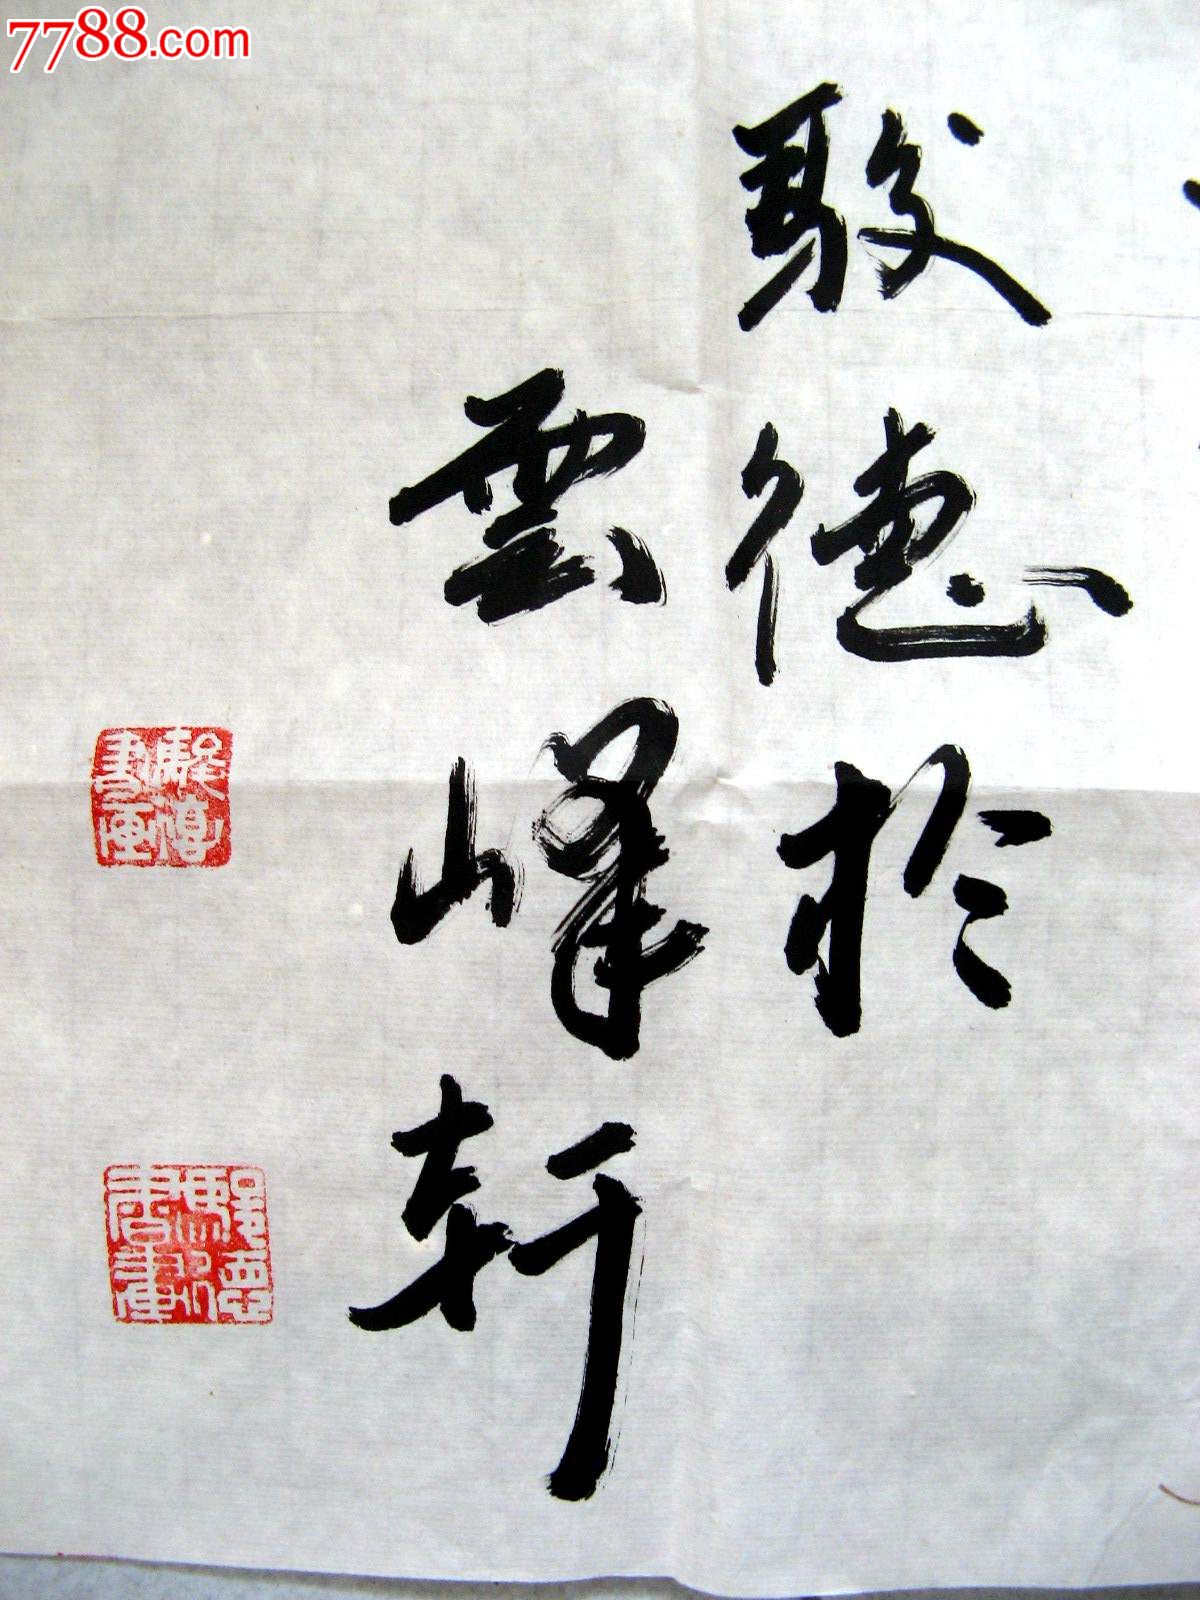 7788.com
駿德於
雲峰軒